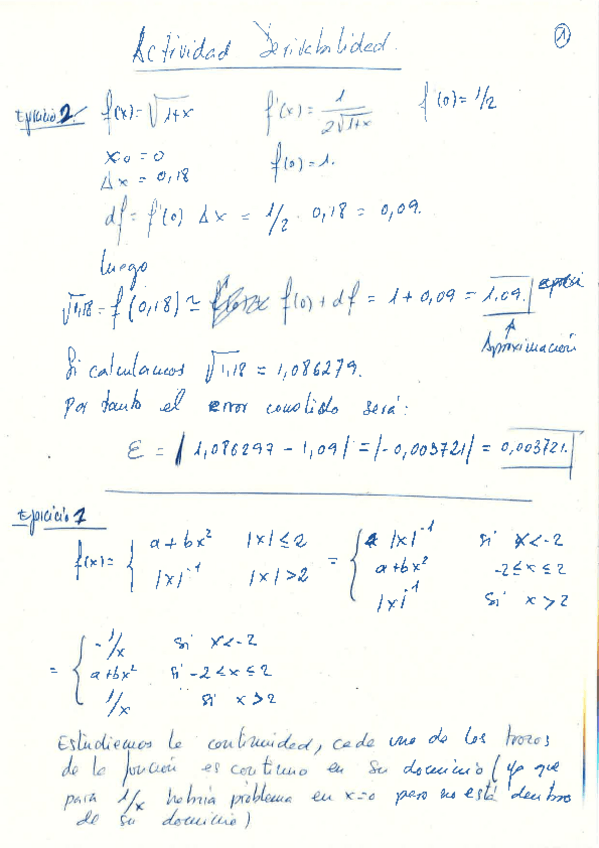 Actividad Derivabilidad.
1
Ejercicio 2. f(x)=√1+x f'(x)= 1/2√1+x f'(0)=1/2
x0=0 f(0)=1.
Δx = 0,18
df= f'(0) Δx = 1/2 · 0,18 = 0,09.
luego
√1,18 = f(0,18) ≃ f(0)+df = 1+0,09 = 1,09.
Aproximación
Si calculamos √1,18 = 1,086279.
por tanto el error cometido será:
ε = | 1,086297 - 1,09| = |-0,003721| = 0,003721.
Ejercicio 1
f(x)= { a+bx² |x|≤2 = { |x|⁻¹ si x<-2
|x|⁻¹ |x|>2 a+bx² -2≤x≤2
|x|⁻¹ si x>2
= { -1/x si x<-2
a+bx² si -2≤x≤2
1/x si x>2
Estudiemos la continuidad, cada uno de los trozos
de la función es continuo en su dominio (ya que
para 1/x habría problema en x=0 pero no está dentro
de su dominio)